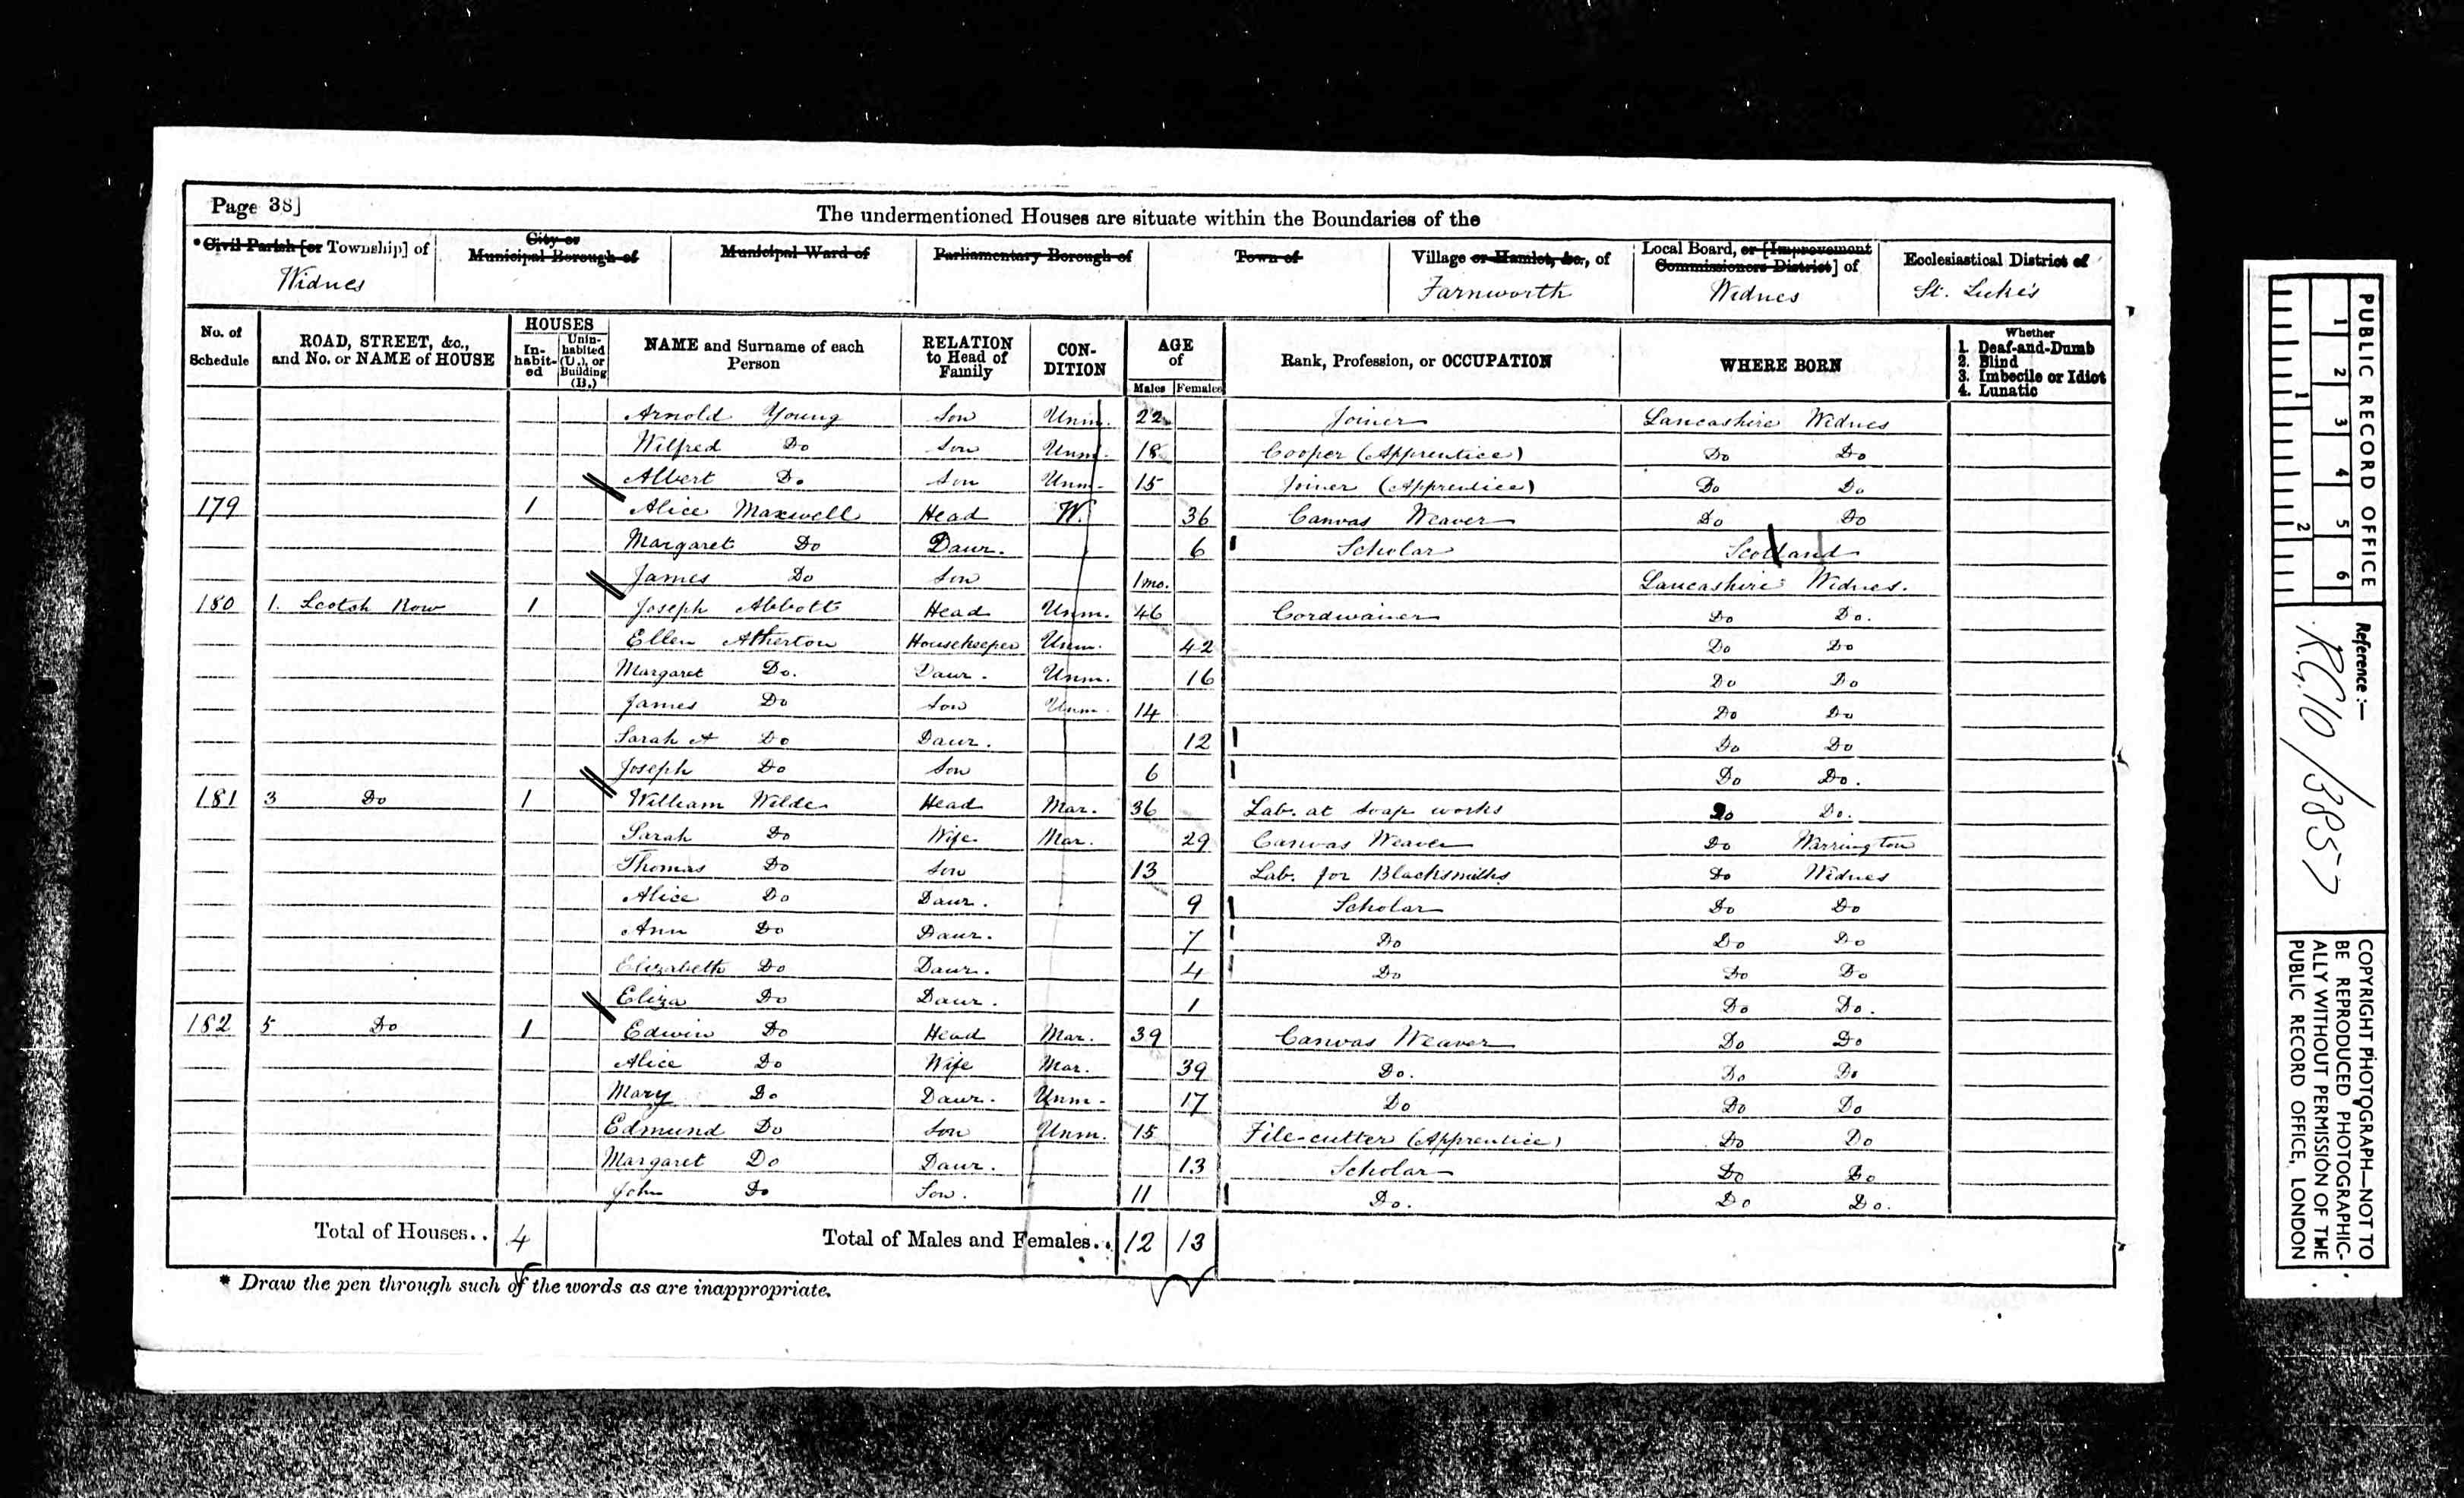 Page 38]
The undermentioned Houses are situate within the Boundaries of the
* Civil Parish [or Township] of
City or Municipal Borough of
Municipal Ward of
Parliamentary Borough of
Town of
Village or Hamlet, &c., of
Local Board, or [Improvement Commissioners District] of
Ecclesiastical District of
Widnes Farnworth Widnes St. Luke's
No. of Schedule
ROAD, STREET, &c., and No. or NAME of HOUSE
HOUSES
In-habit-ed
Unin-habited (U.), or Building (B.)
NAME and Surname of each Person
RELATION to Head of Family
CON-DITION
AGE of
Males Females
Rank, Profession, or OCCUPATION
WHERE BORN
Whether
1. Deaf-and-Dumb
2. Blind
3. Imbecile or Idiot
4. Lunatic
Arnold Young Son Unm. 22 Joiner Lancashire Widnes
Wilfred Do Son Unm. 18 Cooper (Apprentice) Do Do
Albert Do Son Unm. 15 Joiner (Apprentice) Do Do
179 1 Alice Maxwell Head W. 36 Canvas Weaver Do Do
Margaret Do Daur. 6 Scholar Scotland
James Do Son 1mo. Lancashire Widnes.
180 1. Scotch Row 1 Joseph Abbott Head Unm. 46 Cordwainer Do Do.
Ellen Atherton Housekeeper Unm. 42 Do Do
Margaret Do. Daur. Unm. 16 Do Do
James Do Son Unm. 14 Do Do
Sarah A Do Daur. 12 Do Do
Joseph Do Son 6 Do Do.
181 3 Do 1 William Wilde Head Mar. 36 Lab. at Soap works Do Do.
Sarah Do Wife Mar. 29 Canvas Weaver Do Warrington
Thomas Do Son 13 Lab. for Blacksmiths Do Widnes
Alice Do Daur. 9 Scholar Do Do
Ann Do Daur. 7 Do Do Do
Elizabeth Do Daur. 4 Do Do Do
Eliza Do Daur. 1 Do Do.
182 5 Do 1 Edwin Do Head Mar. 39 Canvas Weaver Do Do
Alice Do Wife Mar. 39 Do. Do Do
Mary Do Daur. Unm. 17 Do Do Do
Edmund Do Son Unm. 15 File-cutter (Apprentice) Do Do
Margaret Do Daur. 13 Scholar Do Do
John Do Son. 11 Do. Do Do.
Total of Houses.. 4 Total of Males and Females.. 12 13
* Draw the pen through such of the words as are inappropriate.
PUBLIC RECORD OFFICE
1 2 3 4 5 6
1 2
Reference :—
R.G.10/3857
COPYRIGHT PHOTOGRAPH—NOT TO
BE REPRODUCED PHOTOGRAPHIC-
ALLY WITHOUT PERMISSION OF THE
PUBLIC RECORD OFFICE, LONDON